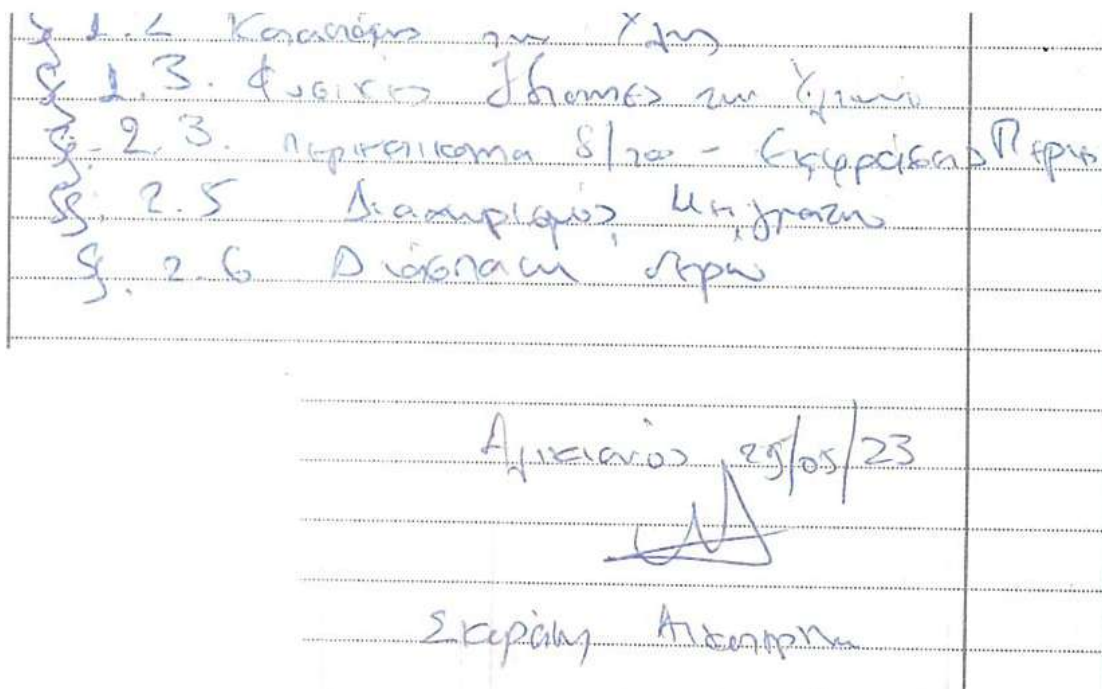 § 1.2 Καταστάσεις της Ύλης
§ 1.3. Φυσικές Ιδιότητες των Υλικών
§. 2.3. Περιεκτικότητα δ/των - Εκφράσεις Περιε
§. 2.5 Διαχωρισμός Μειγμάτων
§. 2.6 Διάσπαση νερού
Αλικιανός 25/05/23
Αικατερίνη